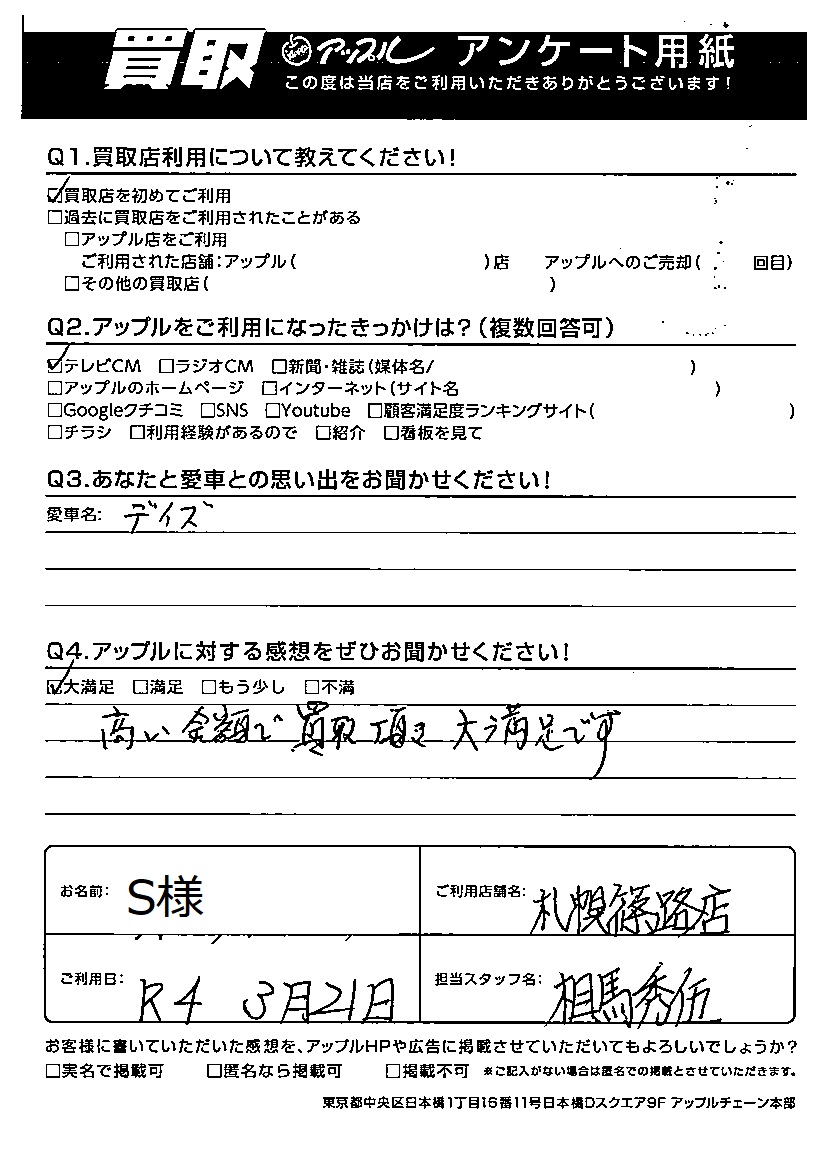 買取 アップル アンケート用紙
この度は当店をご利用いただきありがとうございます!
Q1.買取店利用について教えてください!
☑買取店を初めてご利用
□過去に買取店をご利用されたことがある
□アップル店をご利用
ご利用された店舗:アップル( )店 アップルへのご売却( 回目)
□その他の買取店( )
Q2.アップルをご利用になったきっかけは?(複数回答可)
☑テレビCM □ラジオCM □新聞・雑誌(媒体名/ )
□アップルのホームページ □インターネット(サイト名 )
□Googleクチコミ □SNS □Youtube □顧客満足度ランキングサイト( )
□チラシ □利用経験があるので □紹介 □看板を見て
Q3.あなたと愛車との思い出をお聞かせください!
愛車名: デイズ
Q4.アップルに対する感想をぜひお聞かせください!
☑大満足 □満足 □もう少し □不満
高い金額で買取頂き大満足です
お名前: S様 ご利用店舗名: 札幌篠路店
ご利用日: R4 3月21日 担当スタッフ名: 相馬秀伍
お客様に書いていただいた感想を、アップルHPや広告に掲載させていただいてもよろしいでしょうか?
□実名で掲載可 □匿名なら掲載可 □掲載不可 ※ご記入がない場合は匿名での掲載とさせていただきます。
東京都中央区日本橋1丁目16番11号日本橋Dスクエア9F アップルチェーン本部